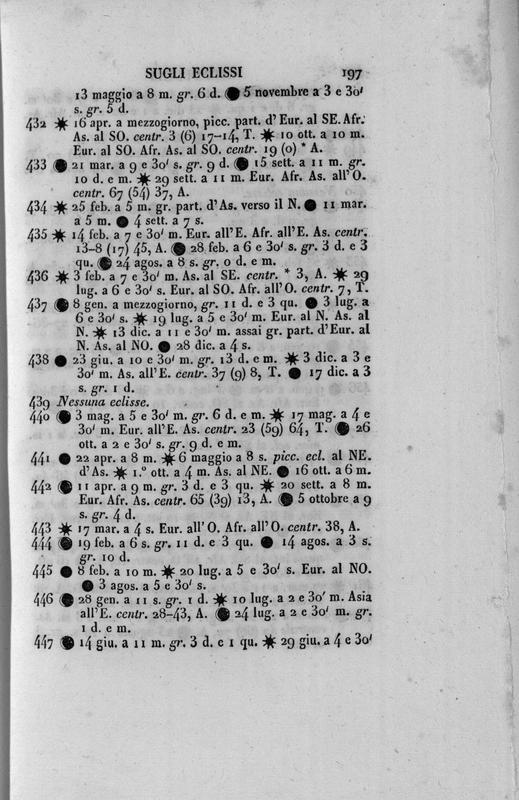 SUGLI ECLISSI 197
13 maggio a 8 m. gr. 6 d. 5 novembre a 3 e 30'
s. gr. 5 d.
432 ✷ 16 apr. a mezzogiorno, picc. part. d'Eur. al SE. Afr.
As. al SO. centr. 3 (6) 17-14, T. ✷ 10 ott. a 10 m.
Eur. al SO. Afr. As. al SO. centr. 19 (0) * A.
433 21 mar. a 9 e 30' s. gr. 9 d. 15 sett. a 11 m. gr.
10 d. e m. ✷ 29 sett. a 11 m. Eur. Afr. As. all'O.
centr. 67 (54) 37, A.
434 ✷ 25 feb. a 5 m. gr. part. d'As. verso il N. ● 11 mar.
a 5 m. ● 4 sett. a 7 s.
435 ✷ 14 feb. a 7 e 30' m. Eur. all'E. Afr. all'E. As. centr.
13-8 (17) 45, A. 28 feb. a 6 e 30' s. gr. 3 d. e 3
qu. 24 agos. a 8 s. gr. 0 d. e m.
436 ✷ 3 feb. a 7 e 30' m. As. al SE. centr. * 3, A. ✷ 29
lug. a 6 e 30' s. Eur. al SO. Afr. all'O. centr. 7, T.
437 8 gen. a mezzogiorno, gr. 11 d. e 3 qu. ● 3 lug. a
6 e 30' s. ✷ 19 lug. a 5 e 30' m. Eur. al N. As. al
N. ✷ 13 dic. a 11 e 30' m. assai gr. part. d'Eur. al
N. As. al NO. ● 28 dic. a 4 s.
438 ● 23 giu. a 10 e 30' m. gr. 13 d. e m. ✷ 3 dic. a 3 e
30' m. As. all'E. centr. 37 (9) 8, T. ● 17 dic. a 3
s. gr. 1 d.
439 Nessuna eclisse.
440 3 mag. a 5 e 30' m. gr. 6 d. e m. ✷ 17 mag. a 4 e
30' m. Eur. all'E. As. centr. 23 (59) 64, T. 26
ott. a 2 e 30' s. gr. 9 d. e m.
441 ● 22 apr. a 8 m. ✷ 6 maggio a 8 s. picc. ecl. al NE.
d'As. ✷ 1.° ott. a 4 m. As. al NE. ● 16 ott. a 6 m.
442 11 apr. a 9 m. gr. 3 d. e 3 qu. ✷ 20 sett. a 8 m.
Eur. Afr. As. centr. 65 (39) 13, A. 5 ottobre a 9
s. gr. 4 d.
443 ✷ 17 mar. a 4 s. Eur. all'O. Afr. all'O. centr. 38, A.
444 19 feb. a 6 s. gr. 11 d. e 3 qu. ● 14 agos. a 3 s.
gr. 10 d.
445 ● 8 feb. a 10 m. ✷ 20 lug. a 5 e 30' s. Eur. al NO.
● 3 agos. a 5 e 30' s.
446 28 gen. a 11 s. gr. 1 d. ✷ 10 lug. a 2 e 30' m. Asia
all'E. centr. 28-43, A. 24 lug. a 2 e 30' m. gr.
1 d. e m.
447 14 giu. a 11 m. gr. 3 d. e 1 qu. ✷ 29 giu. a 4 e 30'